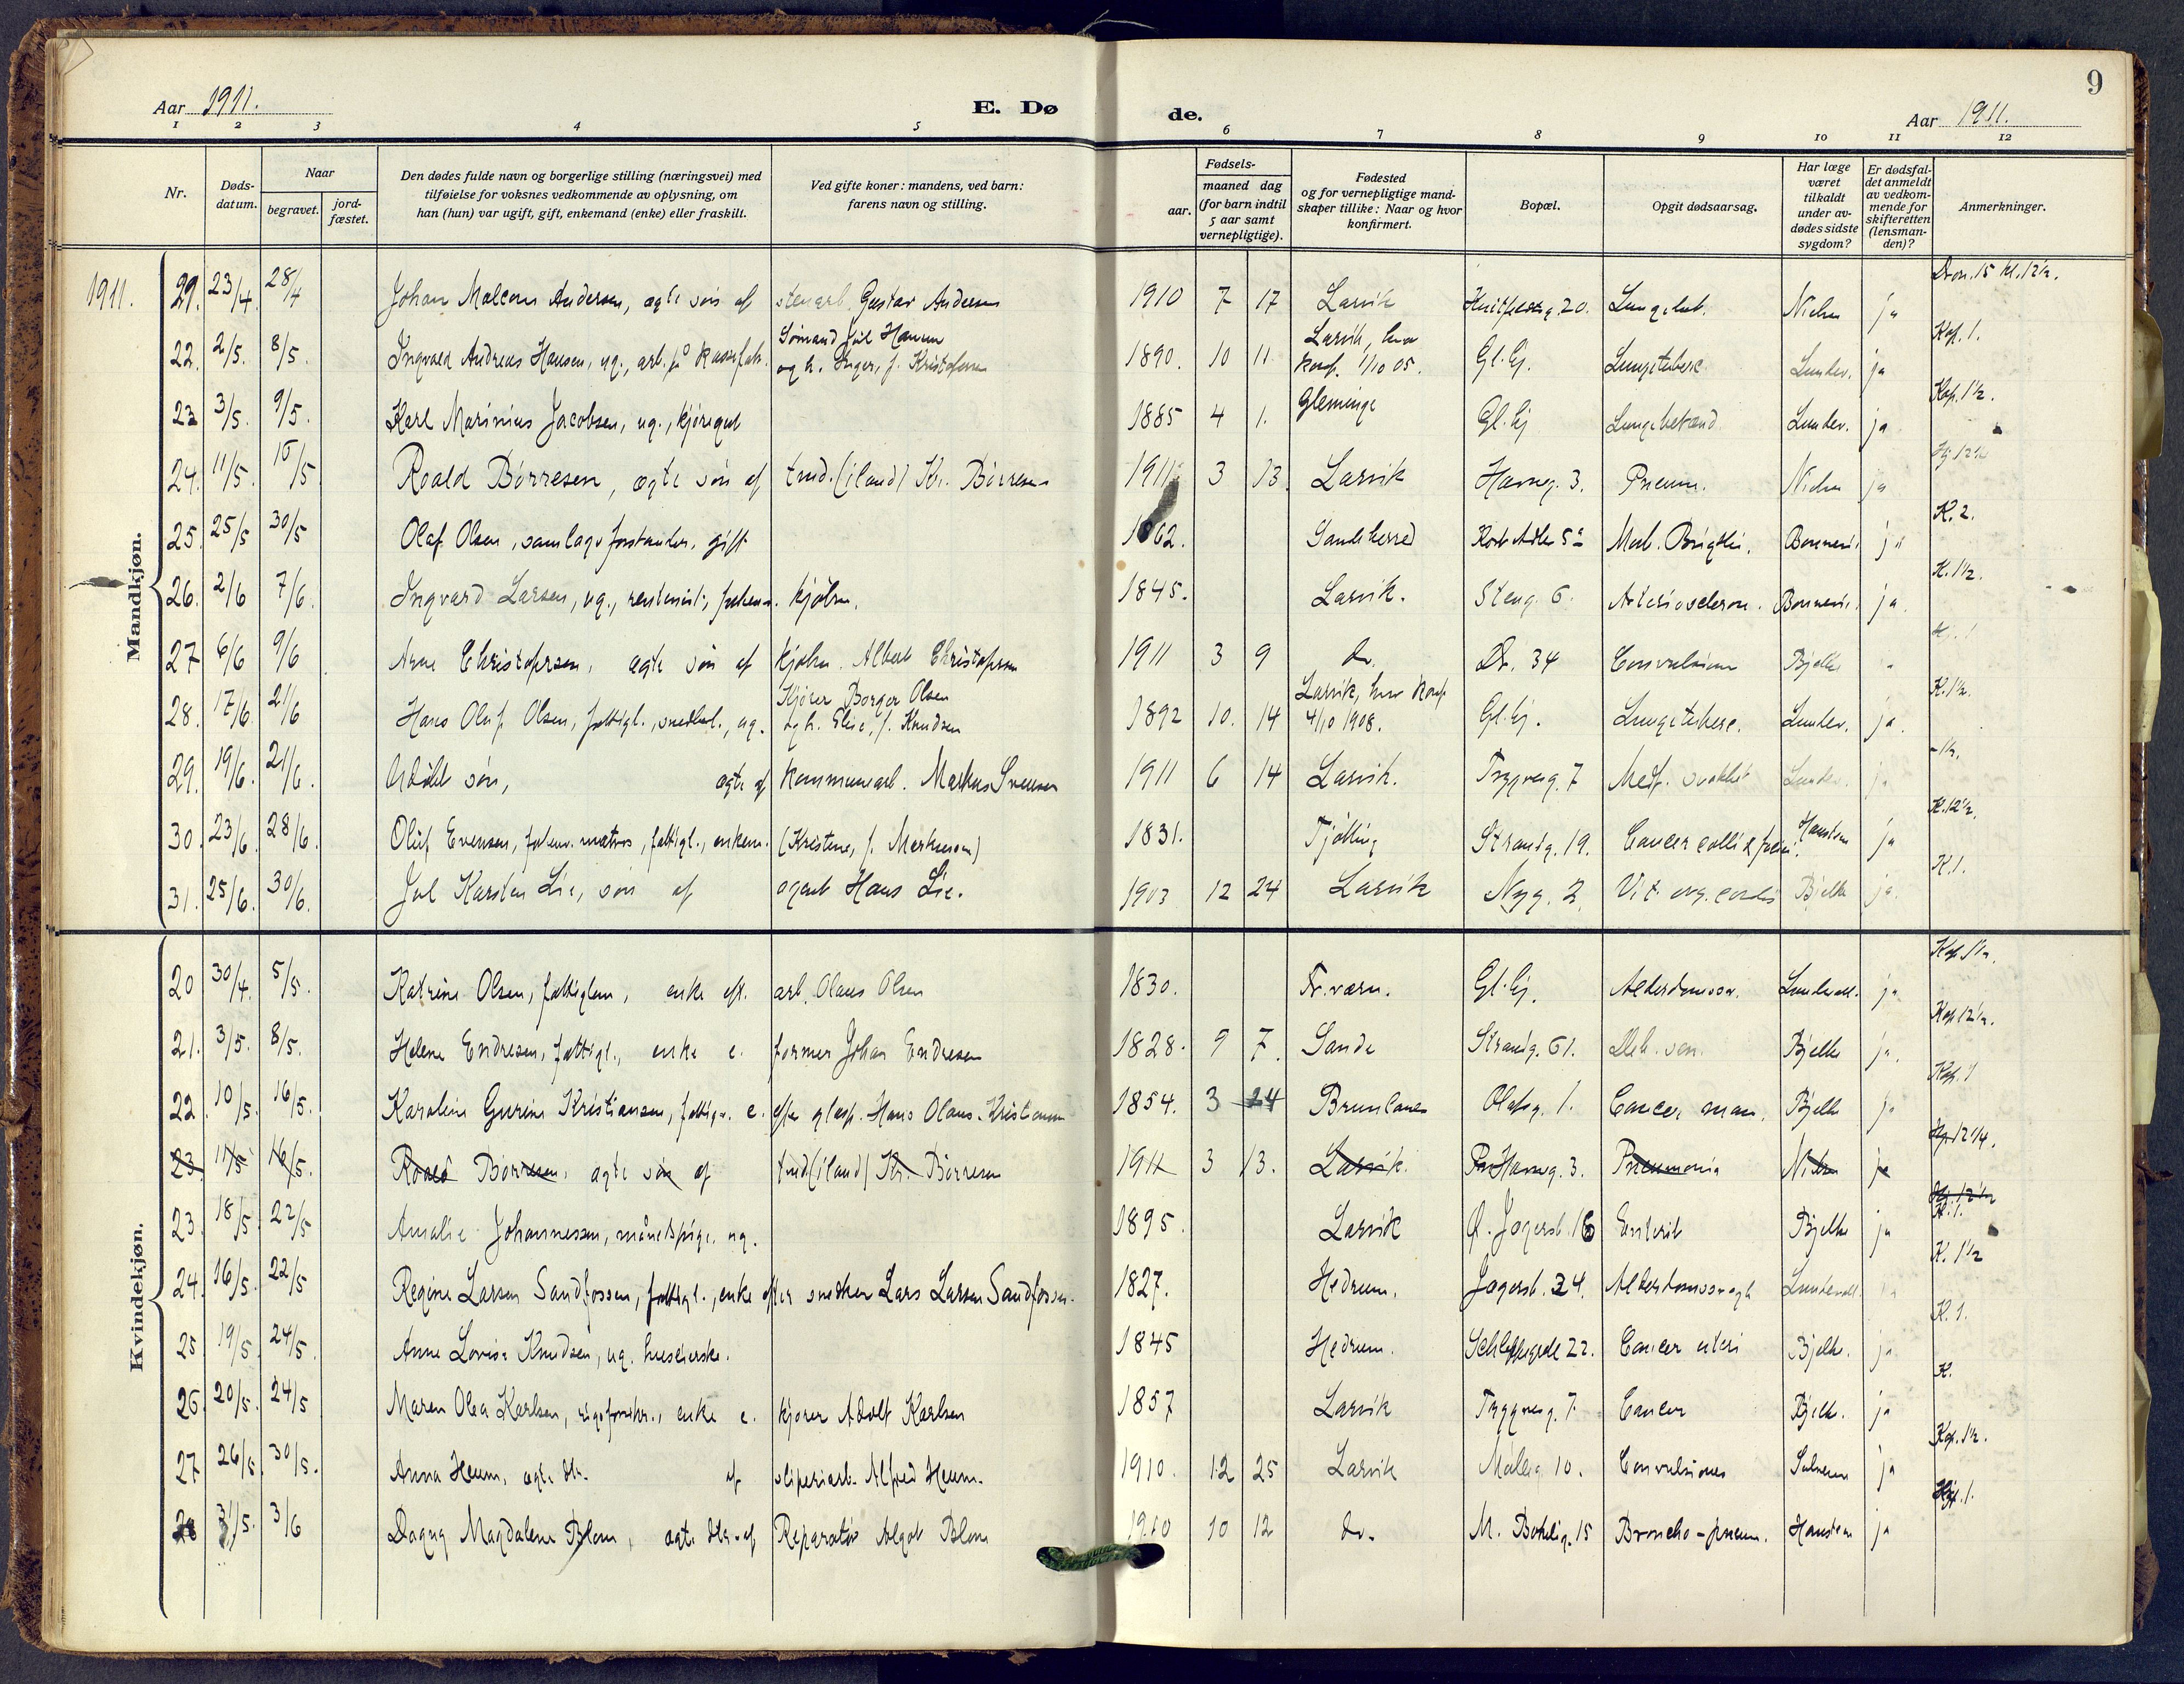 9
Aar 1911. E. Dø de. Aar 1911.
1 2 3 4 5 6 7 8 9 10 11 12
Nr. Døds-datum. Naar begravet. jord-fæstet. Den dødes fulde navn og borgerlige stilling (næringsvei) med tilføielse for voksnes vedkommende av oplysning, om han (hun) var ugift, gift, enkemand (enke) eller fraskilt. Ved gifte koner: mandens, ved barn: farens navn og stilling. Fødsels- aar. maaned dag (for barn indtil 5 aar samt vernepligtige). Fødested og for vernepligtige mandskaper tillike: Naar og hvor konfirmert. Bopæl. Opgit dødsaarsag. Har læge været tilkaldt under avdødes sidste sygdom? Er dødsfaldet anmeldt av vedkommende for skifteretten (lensmanden)? Anmerkninger.
Mandkjøn.
1911. 21. 23/4. 28/4 Johan Malcom Andersen, ægte søn af stenarb. Gustav Andersen 1910 7 17 Larvik 20. Nielsen ja
22. 2/5. 8/5. Ingvald Andreas Hansen, ug., arb. på Sømand Jul Hansen og h. Inger, f. Kristofersen 1890. 10 11 Larvik, her konf. 1/10 05. Gl. Ej. Lungetuberc. Lundev. ja Kap. 1.
23 3/5. 9/5. Karl Marinius Jacobsen, ug., kjøregut 1885 4 1. Gleminge Gl. Ej Lungebetænd Lundev. ja Kap. 1½.
24. 11/5. 16/5. Roald Børresen, ægte søn af tmd. (iland) Kr. Børresen 1911 3 13. Larvik Havneg. 3. Pneum. Nielsen ja
25. 25/5 30/5 Olaf Olsen, samlagsforstander, gift 1862. Sandeherred Morb. Brigthii. ja K. 2.
26. 2/6 7/6. Ingvard Larsen, ug., rentenist, 1845. Larvik. Steng. 6. Arterioscleros. ja. K. 1½.
27 6/6 9/6 Arne Christofersen, ægte søn af Albert Christofersen 1911 3 9 do. Do. 34 Convulsioner Bjelke
28. 17/6. 21/6 Hans Oluf Olsen, fattigl., ug. Kjører Borger Olsen og h. Elise, f. Knudsen 1892 10. 14 Larvik, her konf 4/10 1908. Gl. Ej. Lungetuberc. Lundev. ja. K. 1½.
29. 19/6. 21/6. Udøbt søn, ægte af kommunearb. Markus Svensen 1911 6 14 Larvik. Tryggveg. 7 Medf. svakhet Lundev. ja - 1½.
30. 23/6. 28/6. Oluf Evensen, matros, fattigl., enkem. (Kristine, f. Markusen) 1831. Tjølling Strandg. 19. Cancer colli Hanssen ja K. 12½.
31. 25/6. 30/6. Jul Karsten Lie, søn af agent Hans Lie. 1903 12 24 Larvik Nyg. 2. Vit. org. cordis Bjelke ja. K. 1.
Kvindekjøn.
20 30/4. 5/5. Katrine Olsen, fattiglem, enke eft. arb. Olaus Olsen 1830. Fr.værn. Gl. Ej. Alderdomssv. Lundevall. ja Kap 1½.
21. 3/5. 8/5. Helene Endresen, fattigl., enke e. former Johan Endresen 1828. 9 7. Sande Strandg. 61. Deb. sen. Bjelke ja. Kap 12½.
22. 10/5. 16/5. Karoline Gurine Kristiansen, e. efter Hans Olaus Kristiansen 1854. 3 24 Brunlanes Olafsg. 1. Cancer mam. Bjelke ja Kap. 1
23 11/5 16/5. Roald Børresen, ægte søn af tmd (iland) Kr. Børresen 1911 3 13. Larvik. Havneg. 3. Pneumonia Nielsen ja
23. 18/5 22/5 Amalie Johannessen, månedspige, ug. 1895. Larvik Ø. Jegersb. 16 Enterit Bjelke ja K. 1.
24. 16/5. 22/5 Regine Larsen Sandfossen, fattigl., enke efter snedker Lars Larsen Sandfossen. 1827. Hedrum. Jegersb. 24. Alderdomssvagh Lundevall. K. 1½
25 19/5. 24/5. Anne Lovise Knudsen, ug. husholderske. 1845 Hedrum. 22. Cancer uteri Bjelke. ja K. 1.
26. 20/5. 24/5 Maren Olea Karlsen, enke e. kjører Adolf Karlsen 1857 Larvik Tryggveg. 7 Cancer Bjelke. ja K.
27 26/5. 30/5. Anna Heum, ægte dtr. af sliperiarb. Alfred Heum. 1910. 12 25 Larvik 10. Convulsioner ja Kap. 1½.
28 31/5. 3/6 Dagny Magdalene Blom, ægte dtr. af Reparatør Algot Blom 1910 10 12 do. 15 Broncho-pneum. Hanssen ja